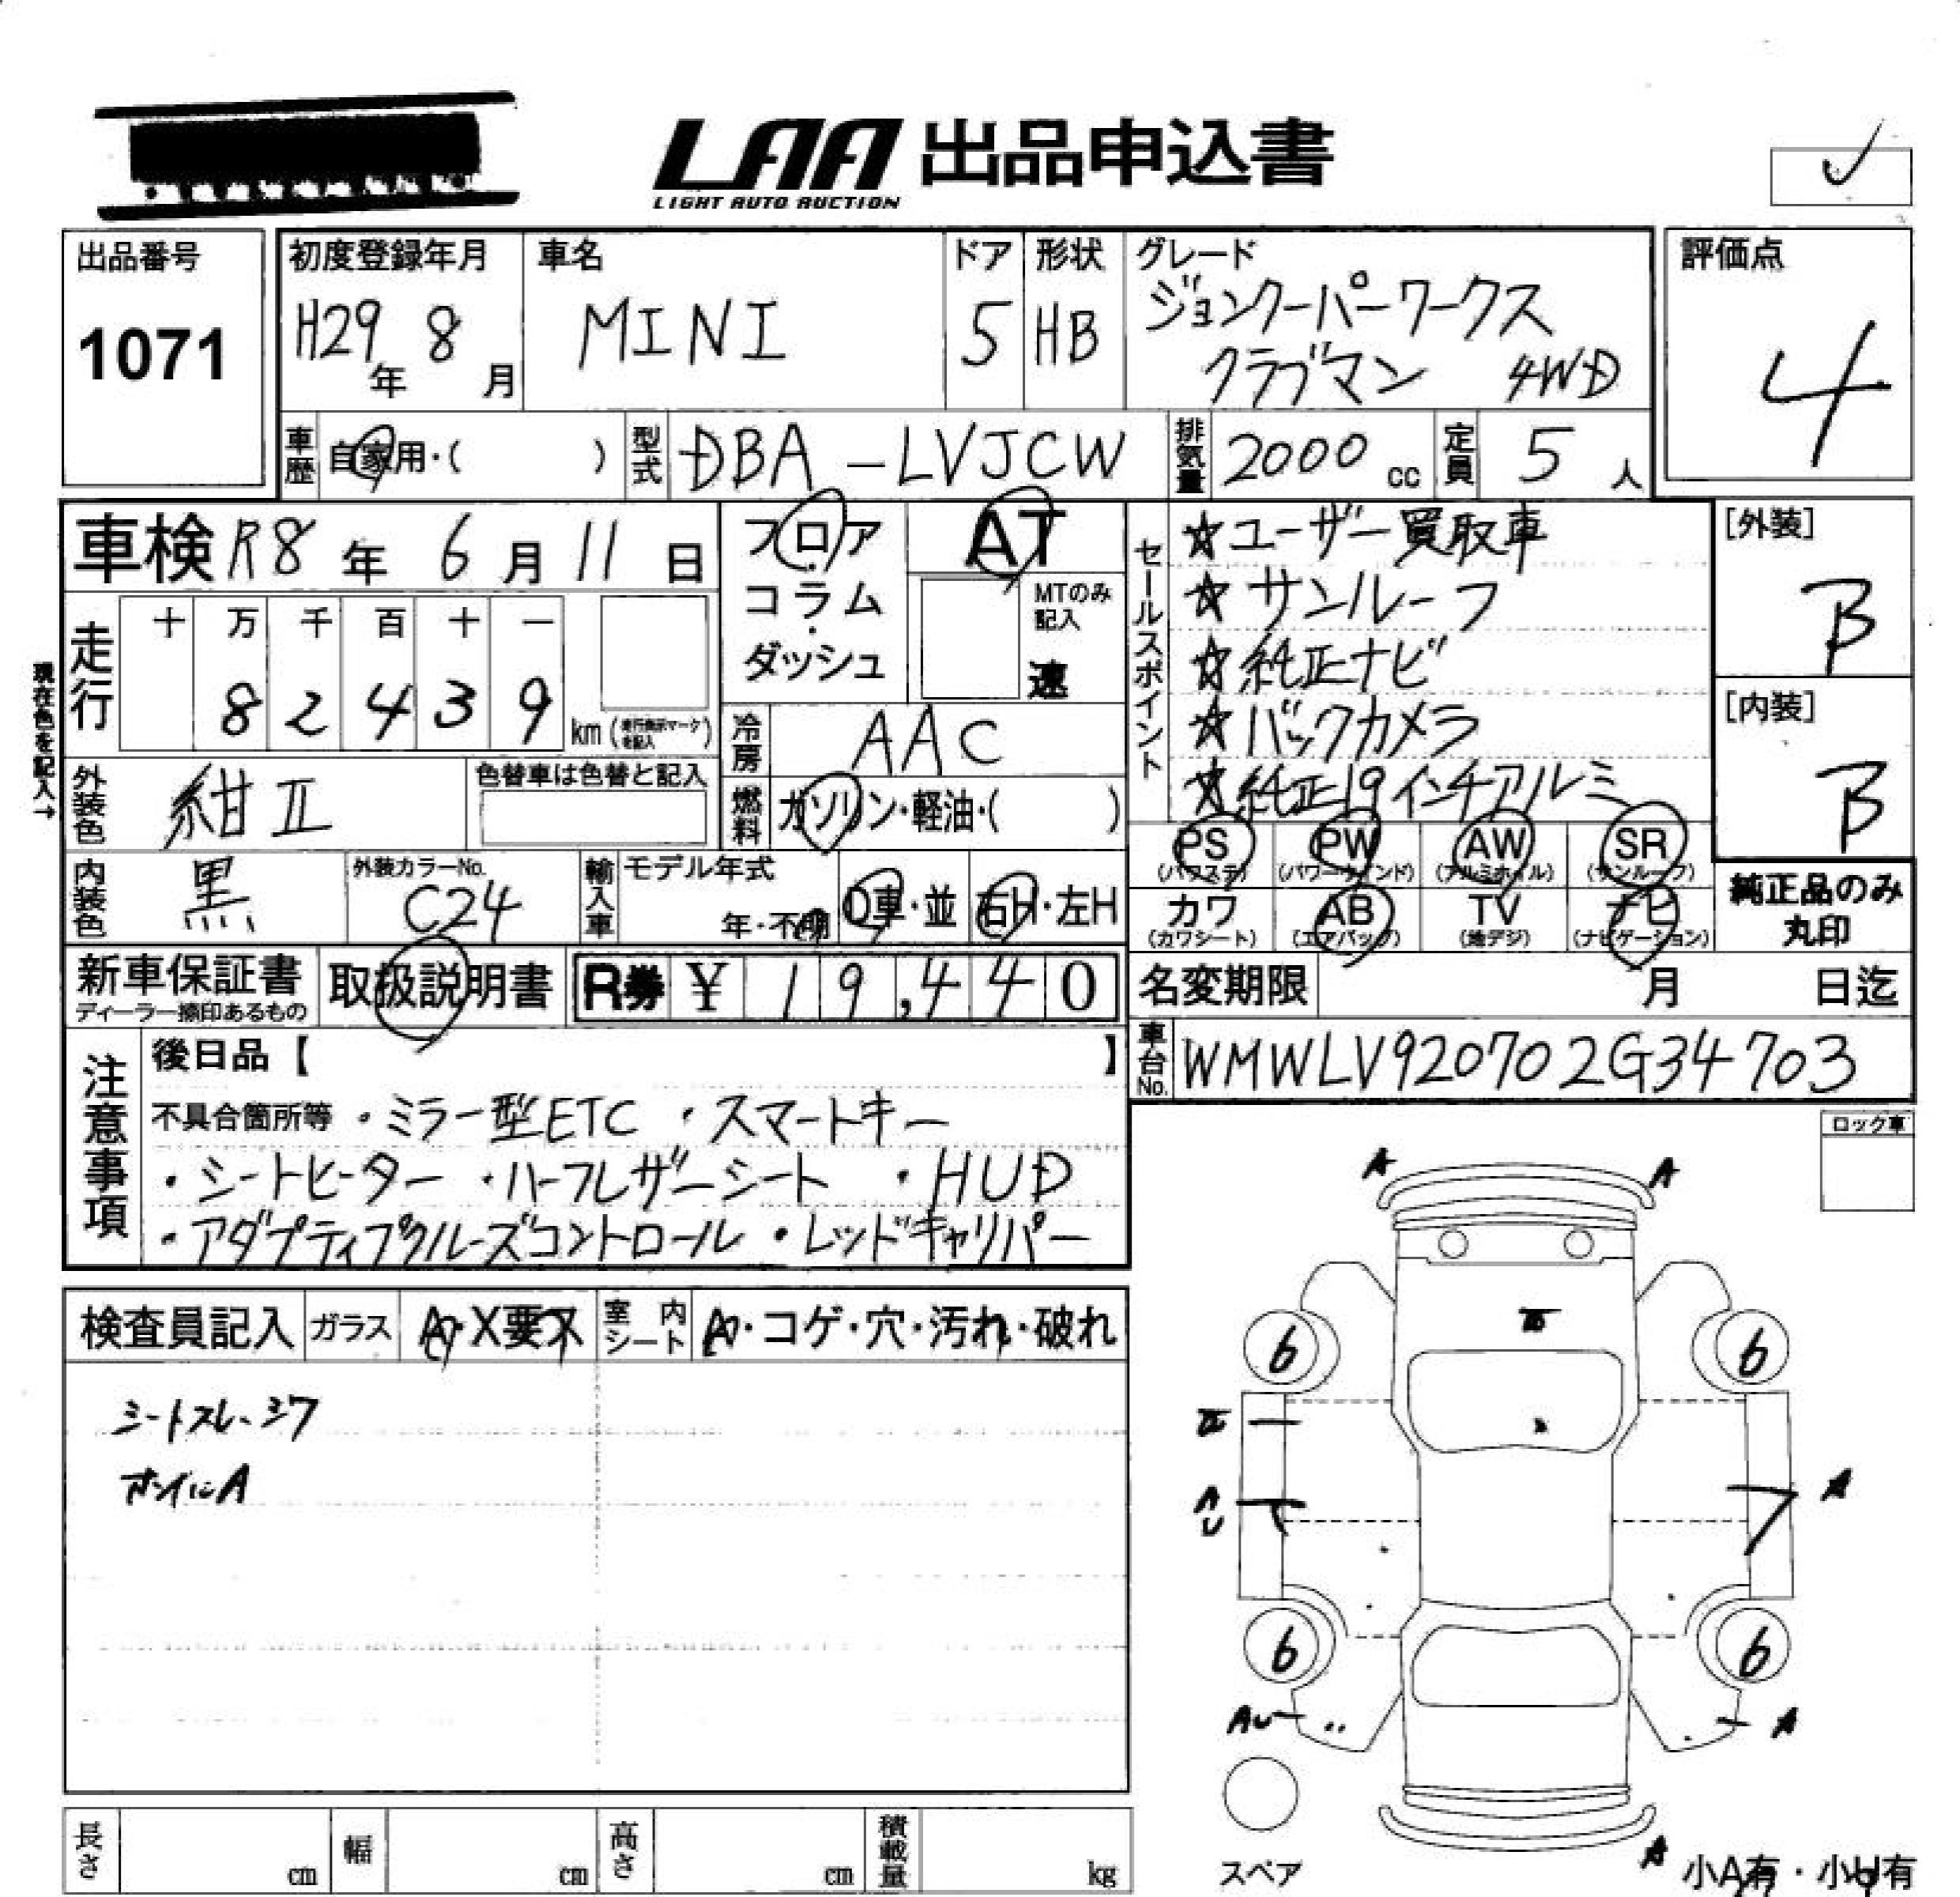 LAA 出品申込書
LIGHT AUTO AUCTION
出品番号
1071
初度登録年月
H29年 8月
車名
MINI
ドア
5
形状
HB
グレード
ジョンクーパーワークス
クラブマン 4WD
評価点
4
車歴 自家用・( )
型式 DBA-LVJCW
排気量 2000 cc
定員 5 人
車検 R8年 6月 11日
フロア・コラム・ダッシュ
AT
MTのみ記入
速
セールスポイント
☆ユーザー買取車
☆サンルーフ
☆純正ナビ
☆バックカメラ
☆純正19インチアルミ
[外装]
B
[内装]
B
現在色を記入→
走行 十 万 千 百 十 一
8 2 4 3 9 km (走行表示マークを記入)
冷房 AAC
外装色 紺Ⅱ
色替車は色替と記入
燃料 ガソリン・軽油・( )
内装色 黒
外装カラーNo.
C24
輸入車 モデル年式
年・不明
D車・並
右H・左H
PS (パワステ)
PW (パワーウインド)
AW (アルミホイル)
SR (サンルーフ)
カワ (カワシート)
AB (エアバッグ)
TV (地デジ)
ナビ (ナビゲーション)
純正品のみ
丸印
新車保証書
ディーラー捺印あるもの
取扱説明書
R券 ¥ 19,440
名変期限 月 日迄
車台No. WMWLV920702G34703
注意事項
後日品【 】
不具合箇所等 ・ミラー型ETC ・スマートキー
・シートヒーター ・ハーフレザーシート ・HUD
・アダプティブクルーズコントロール ・レッドキャリパー
ロック車
検査員記入
ガラス A・X要ス
室内シート A・コゲ・穴・汚れ・破れ
シートスレ、シワ
ホイルA
A A
6 6
A
A
U
A
6 6
AU
A
A
スペア
小A有・小U有
長さ cm
幅 cm
高さ cm
積載量 kg